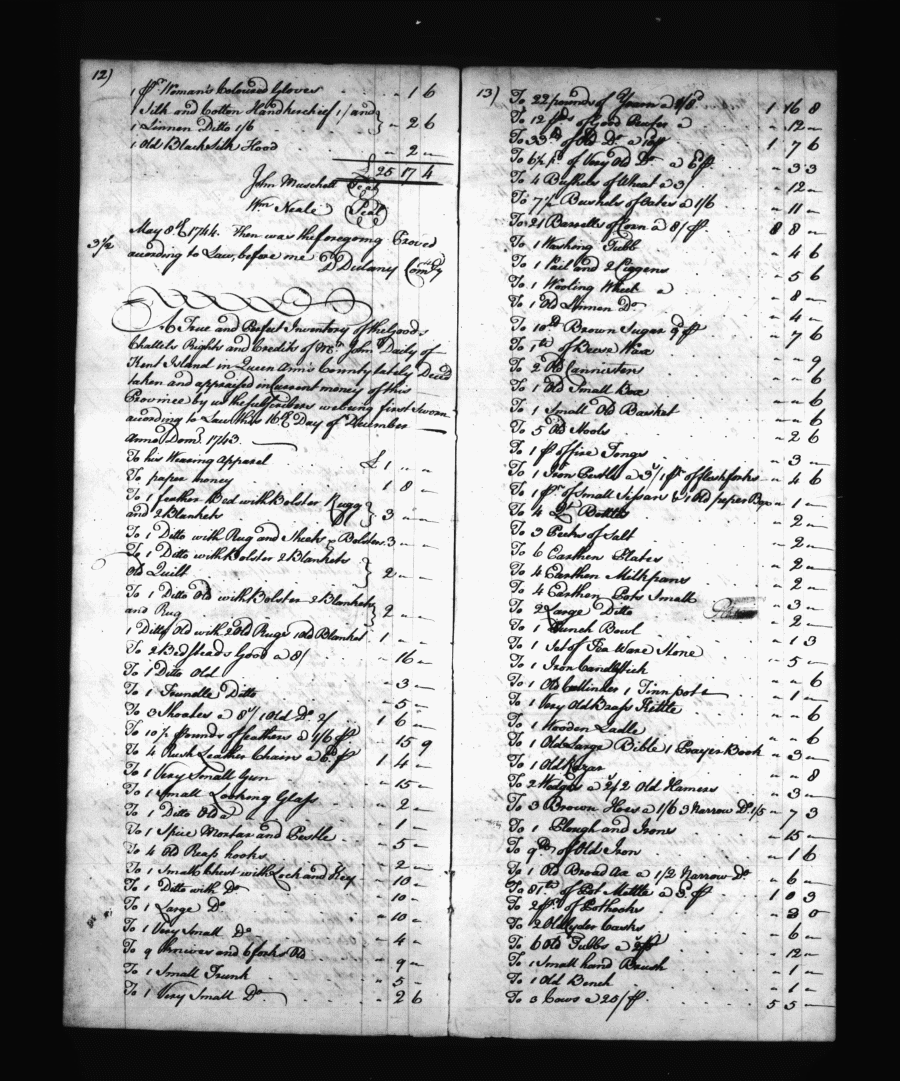 12)
1 pr Woman's Coloured Gloves - 1 6
1 Silk and Cotton Handkerchief 1/ and
1 Linnen Ditto 1/6 } - 2 6
1 Old Black silk Hood - 2 -
£ 25 17 4
John Muschett Seal
Wm Neale Seal
May 8th 1744. Then was the foregoing Proved
3 1/2 according to Law, before me D Dulany Comry
A True and Perfect Inventory of the Goods
Chattels Rights and Credits of Mr John Daily of
Kent Island in Queen Ann's County lately Deced
taken and appraised in Current money of this
Province by us the subscribers we being first Sworn
according to Law this 16th Day of December
Anno Domi 1743.
To his Wearing Apparel £ 1 " "
To paper money 1 8 -
To 1 feather Bed with Bolster Rugg
and 2 Blankets } 3 - -
To 1 Ditto with Rug and Sheets & Bolster 3 - -
To 1 Ditto with Bolster 2 Blankets
Old Quilt } 2 - -
To 1 Ditto Old with Bolster 2 Blankets
and Rug } 2 - -
1 Ditto Old with 2 Old Rugs 1 Old Blanket 1 - -
To 2 Bedsteads Good a 8/ - 16 -
To 1 Ditto Old - 3 -
To 1 Trundle Ditto - 5 -
To 3 Shoates a 8/ 1 Old Do 2/ 1 6 -
To 10 1/2 Pounds of feathers a 1/6 pr - 15 9
To 4 Rush Leather Chairs a 6/ pr 1 4 -
To 1 Very Small Gun - 15 -
To 1 Small Looking Glass - 2 -
To 1 Ditto Old - 1 -
To 1 Spice Mortar and Pestle - 5 -
To 4 Old Reap hooks - 2 -
To 1 Small Chest with Lock and Key - 10 -
To 1 Ditto with Do - 10 -
To 1 Large Do - 10 -
To 1 Very Small Do - 4 -
To 9 Knives and 6 forks Old - 9 -
To 1 Small Trunk - 5 -
To 1 Very Small Do - 2 6
13)
To 22 pounds of Yearn a 1/8 1 16 8
To 12 pds of Good Pewter a - 12 -
To 33 lb of Old Do a 10 pr 1 7 6
To 6 1/2 pd of Very Old Do a 6 pr - 3 3
To 4 Bushels of Wheat a 3/ - 12 -
To 7 1/2 Bushels of Oates a 1/6 - 11 -
To 21 Barrells of Corn a 8/ pr 8 8 -
To 1 Washing Tubb - 4 6
To 1 Pail and 2 Piggens - 5 6
To 1 Wooling Wheel a - 8 -
To 1 Old Linnen Do - 4 -
To 10 lb Brown Sugar 9 pr - 7 6
To 1 lb of Bees Wax - - 9
To 2 Old Cannisters - - 6
To 1 Old Small Box - - 6
To 1 Small Old Basket - - 6
To 5 Old Stools - 2 6
To 1 pr of fire Tongs - 3 -
To 1 Iron Pestle a 3/ 1 pr of flesh forks - 4 6
To 1 pr of Small Sissars & 1 Old paper Box - 1 -
To 4 Qt Bottles - 2 -
To 3 Pecks of Salt - 2 -
To 6 Earthen Plates - 2 -
To 4 Earthen Milkpans - 2 -
To 4 Earthen Pots Small - 3 -
To 2 Large Ditto - 2 -
To 1 Punch Bowl - 1 3
To 1 Set of Tea Ware Stone - 5 -
To 1 Iron Candlestick - - 6
To 1 Old Cullinder 1 Tinn pot - 1 -
To 1 Very Old Brass Kettle - - 6
To 1 Wooden Ladle - - 6
To 1 Old Large Bible 1 Prayer Book - 3 -
To 1 Old Razor - - 8
To 2 Wedges a 2/ 2 Old Hamers - 3 -
To 3 Brown Hoes a 1/6 3 Narrow Do 1/5 - 7 3
To 1 Plough and Irons - 15 -
To 9 lb of Old Iron - 1 6
To 1 Old Broad Ax a 1/ 2 Narrow Do - 6 -
To 81 lb of Pot Mettle a 3 pr 1 0 3
To 2 pr of Pothooks - 3 0
To 2 Old Cyder Casks - 6 -
To 6 Old Tubbs a 2/ pr - 12 -
To 1 Small hand Brush - 1 -
To 1 Old Bench - 1 -
To 3 Cows a 25/ pr 5 5 -